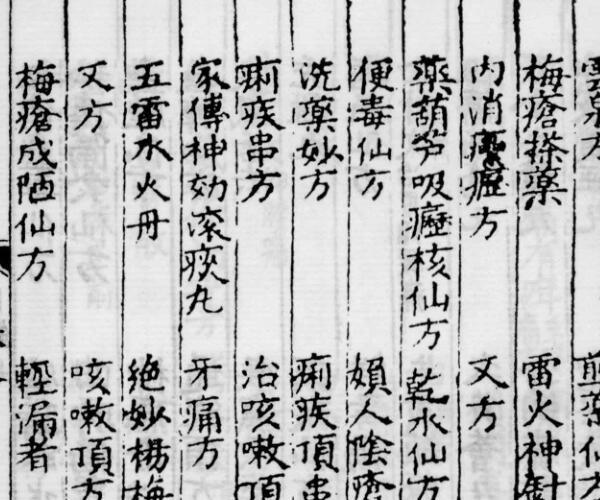 雲泉方 煎藥仙方
梅瘡搽藥 雷火神針
內消瘰癧方 又方
藥葫芦吸癧核仙方 乾水仙方
便毒仙方 婦人陰瘡
洗藥妙方 痢疾頂串
痢疾串方 治咳嗽頂
家傳神効滚痰丸 牙痛方
五雷水火丹 絶妙楊梅
又方 咳嗽頂方
梅瘡成陋仙方 輕漏者